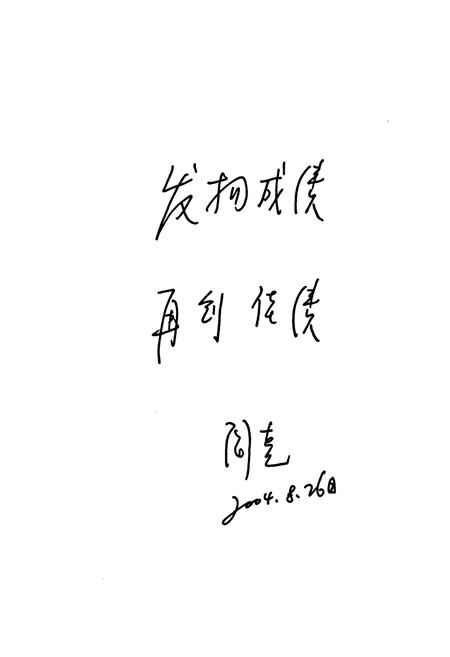 发扬成绩
再创佳绩
2004.8.26日